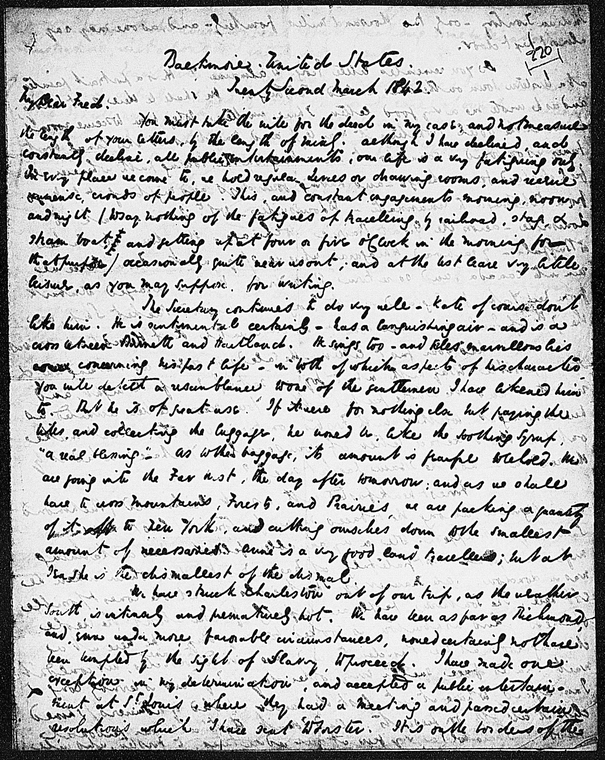 220
Baltimore. United States.
Twenty Second March 1842.
My Dear Fred.
You must take the will for the deed in my case, and not measure
the length of your letters, by the length of mine. Although I have declined, and
constantly decline, all public entertainments, our life is a very fatiguing one.
In every place we come to, we hold regular levees or drawing rooms, and receive
immense crowds of people. This, and constant engagements morning, noon,
and night (to say nothing of the fatigues of travelling by railroad, stage, and
steam boat, and getting up at four or five o'Clock in the morning for
that purpose) occasionally quite wear us out; and at the best leave very little
leisure as you may suppose, for writing.
The Secretary continues to do very well. Kate of course don't
like him. He is sentimental certainly - has a languishing air - and is a
cross between and. He sings too - and tells marvellous lies
concerning his past life - in both of which aspects of his character
you will detect a resemblance to one of the gentlemen I have likened him
to. But he is of great use. If it were for nothing else but paying the
bills, and collecting the luggage, he would be like the soothing Syrup,
"a real blessing". As to the baggage, its amount is fearful to behold. We
are going into the Far West, the day after tomorrow; and as we shall
have to cross Mountains, Forests, and Prairies, we are packing a quantity
of it off to New York, and cutting ourselves down to the smallest
amount of necessaries. Anne is a very good land traveller; but at
Sea she is the dismallest of the dismal.
We have struck Charleston out of our trip, as the weather
South is intensely and prematurely hot. We have been as far as Richmond,
and even under more favorable circumstances, would certainly not have
been tempted by the sight of Slavery, to proceed. I have made one
exception in my determination, and accepted a public entertain-
ment at St Louis where they had a meeting and passed certain
resolutions which I have sent to Forster. It is on the borders of the